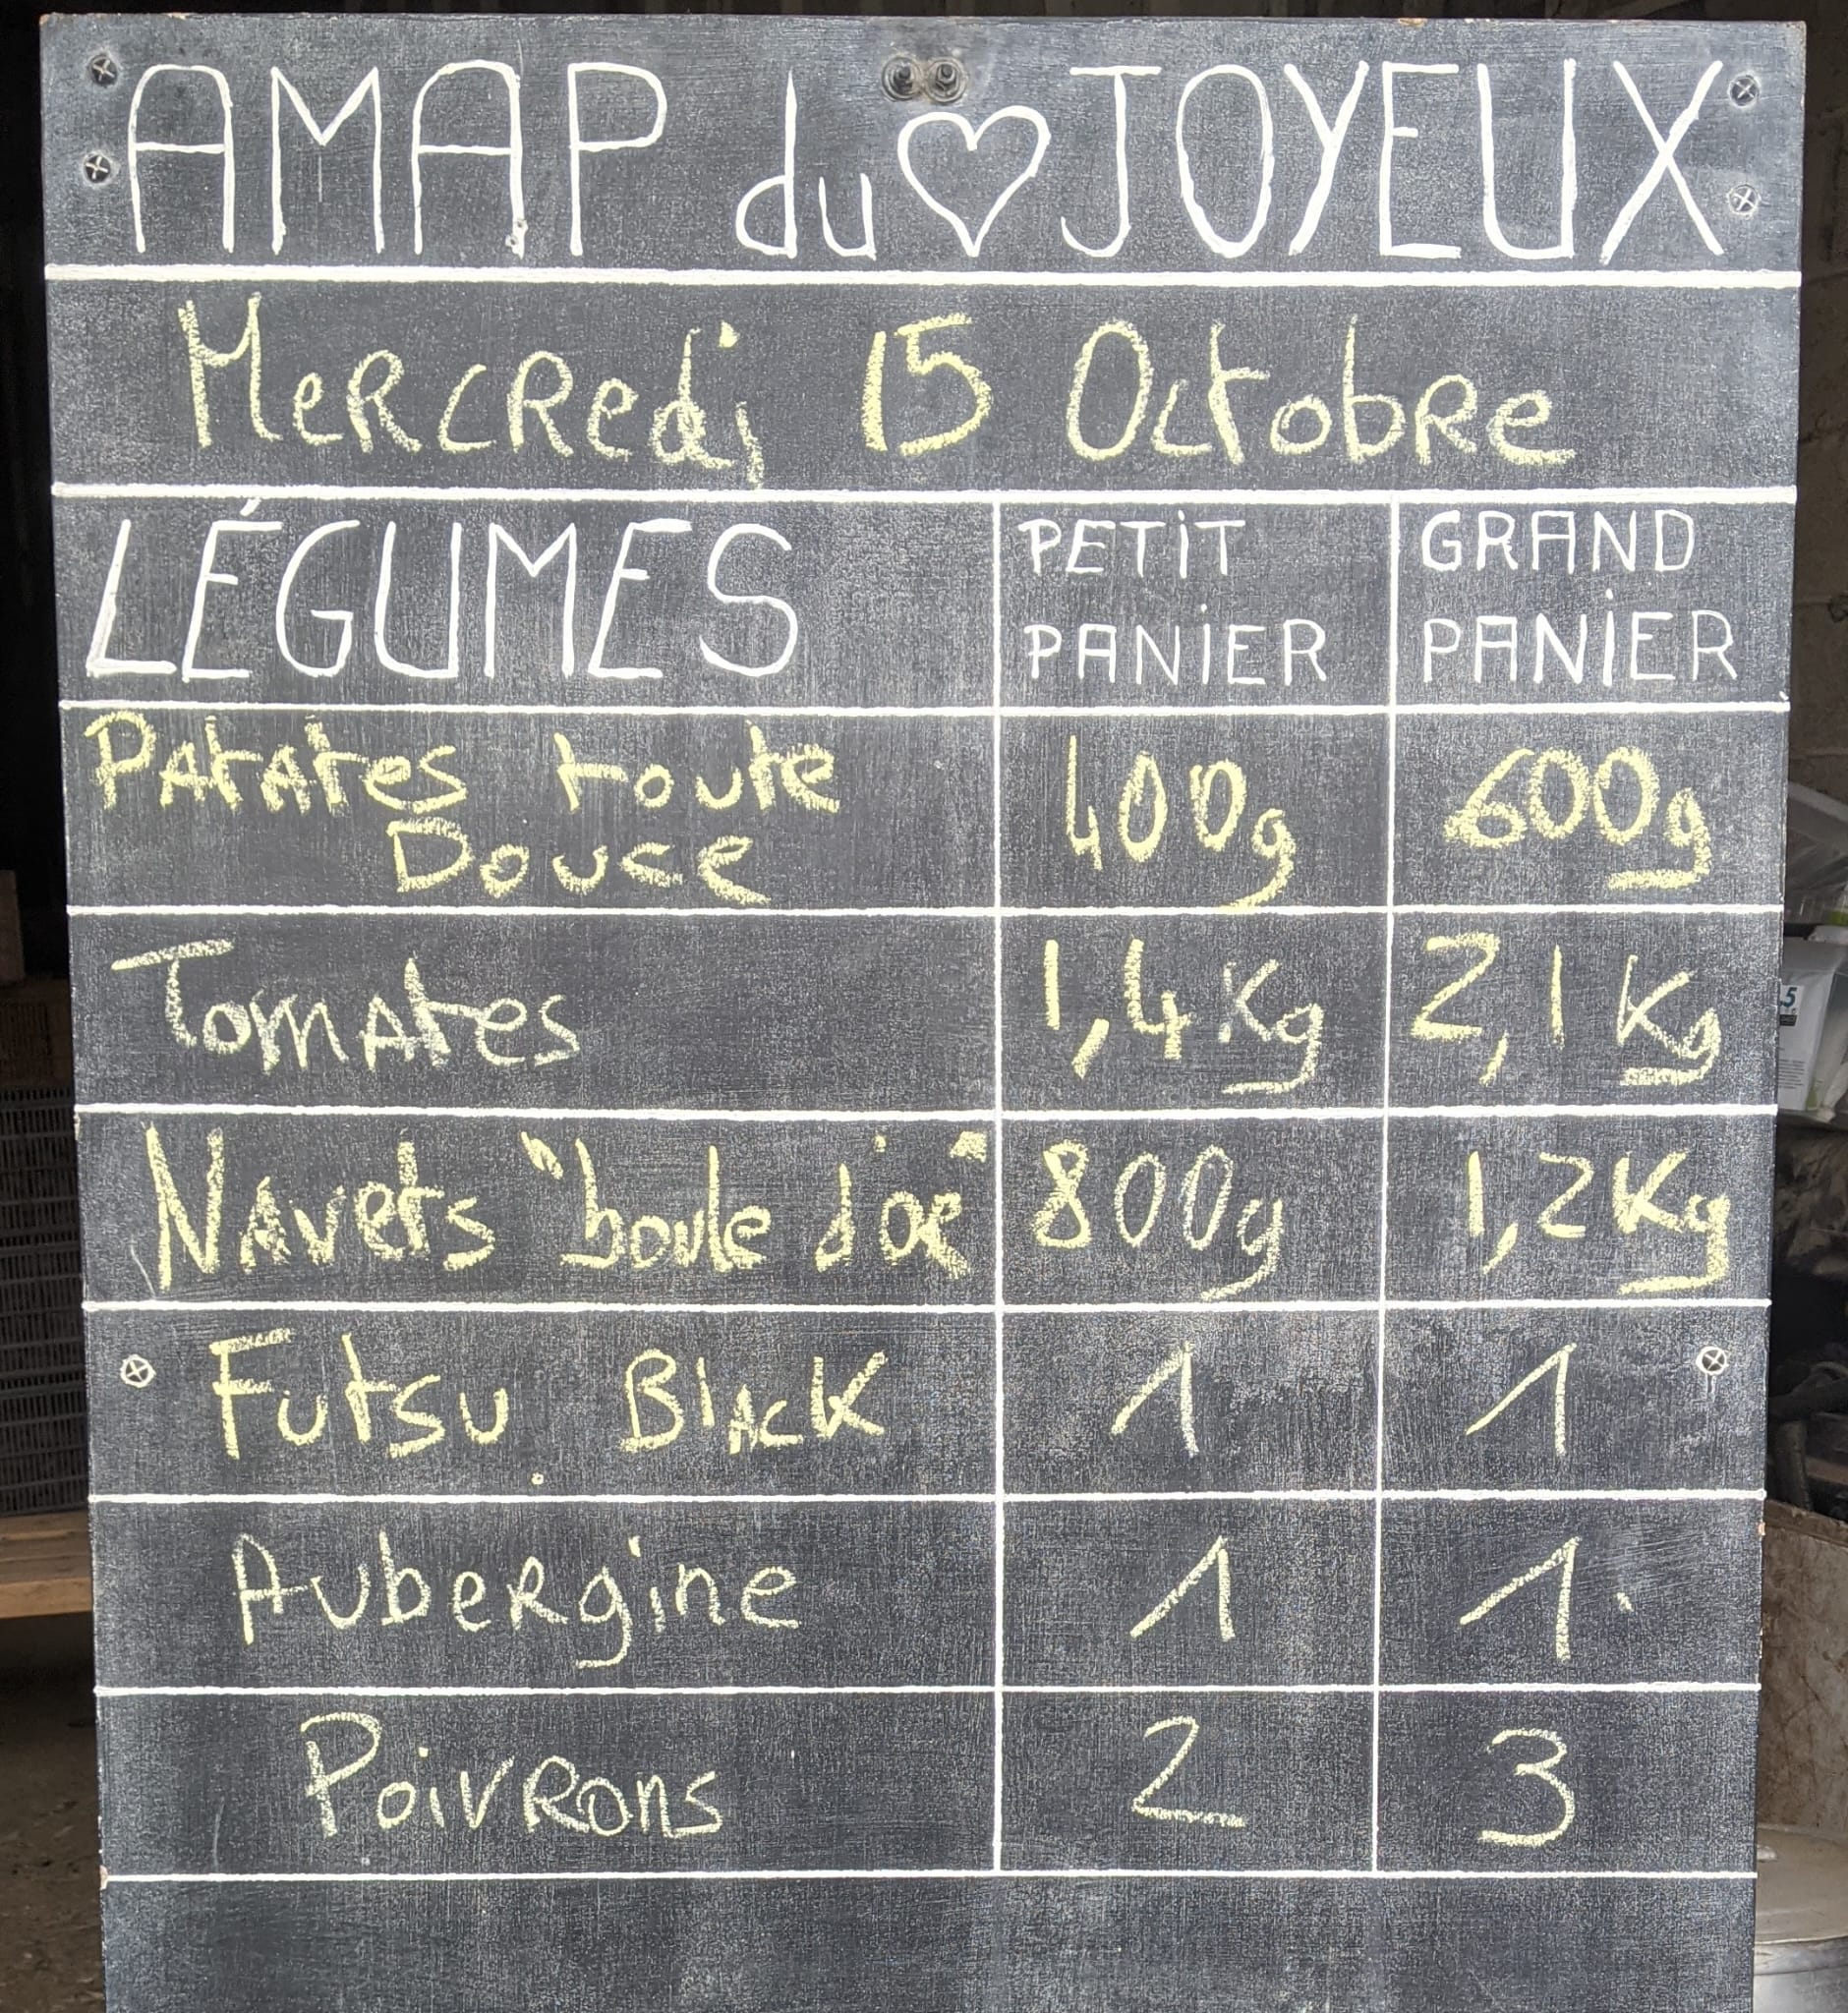 AMAP du ♡ JOYEUX
Mercredi 15 Octobre
LÉGUMES PETIT PANIER GRAND PANIER
Patates toute Douce 400g 600g
Tomates 1,4 Kg 2,1 Kg
Navets "boule d'or" 800g 1,2 Kg
Futsu Black 1 1
Aubergine 1 1
Poivrons 2 3